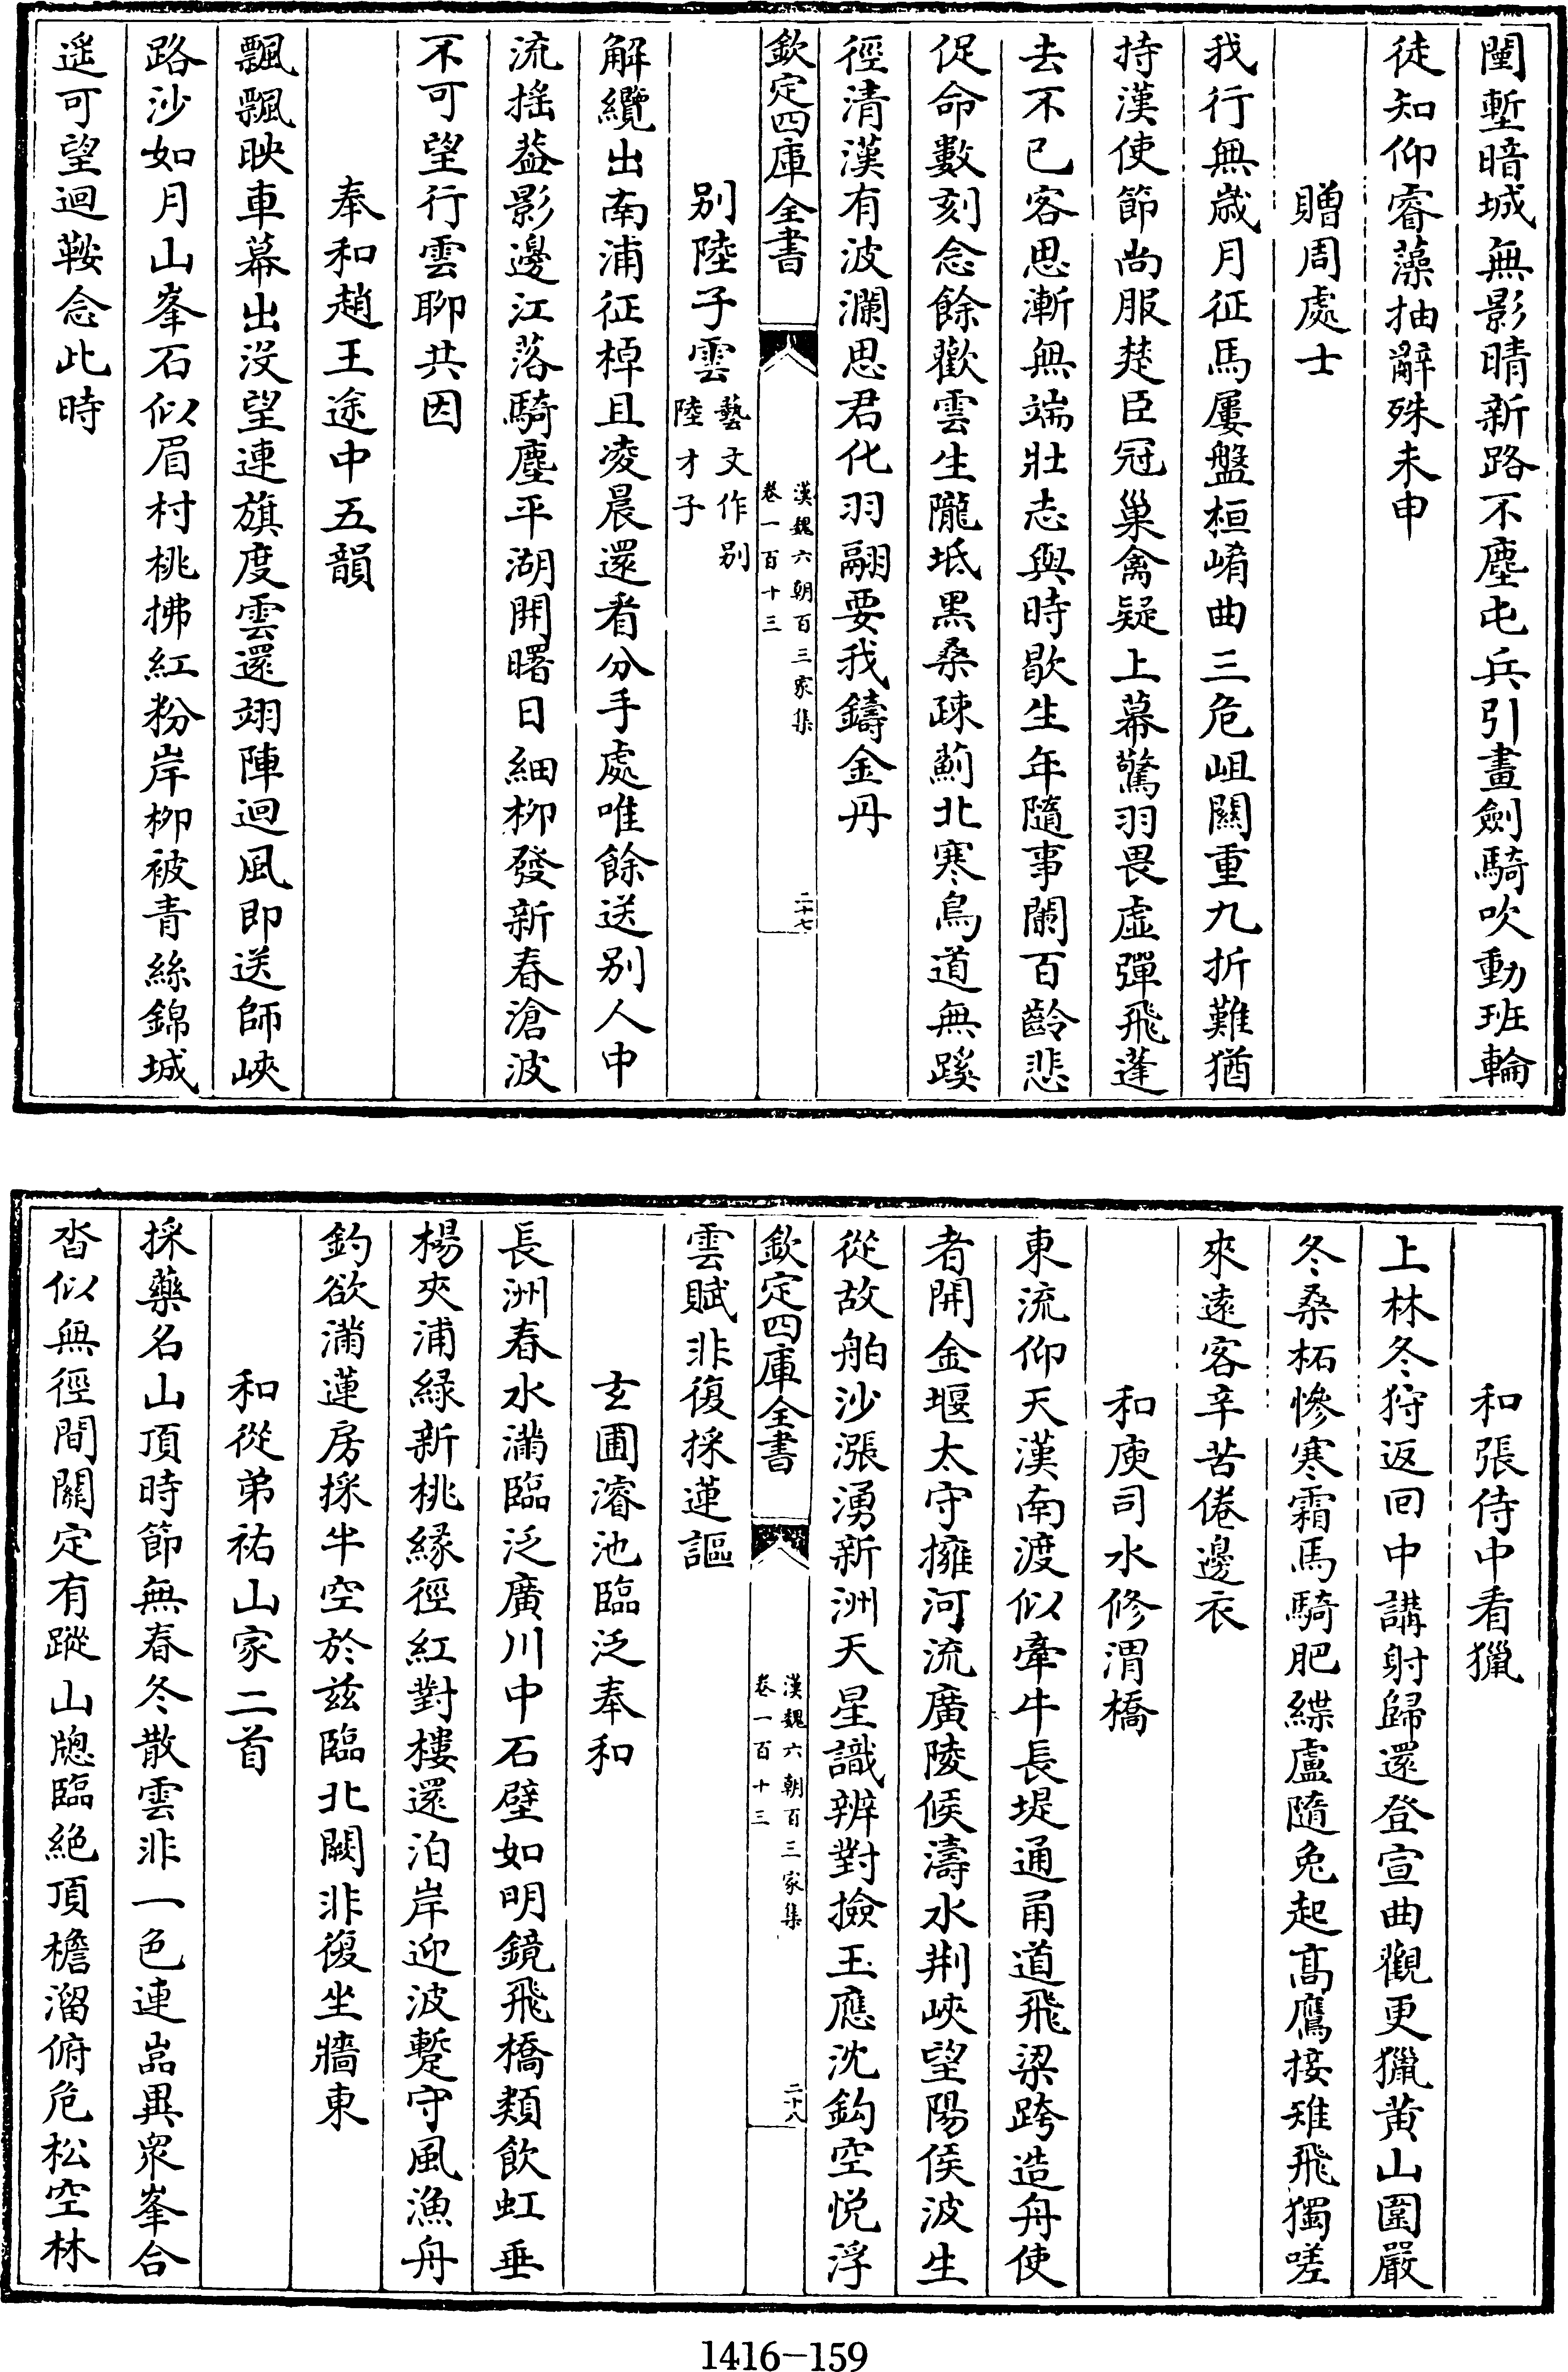 闉塹暗城無影晴新路不塵屯兵引畫劍騎吹動班輪
徒知仰睿藻抽辭殊未申
贈周處士
我行無歲月征馬屢盤桓崤曲三危岨關重九折難猶
持漢使節尚服楚臣冠巢禽疑上幕驚羽畏虛彈飛蓬
去不已客思漸無端壯志與時歇生年隨事闌百齡悲
促命數刻念餘歡雲生隴坻黑桑疎薊北寒鳥道無蹊
徑清漢有波瀾思君化羽翮要我鑄金丹
欽定四庫全書
漢魏六朝百三家集
卷一百十三
二十七
别陸子雲
藝文作别
陸才子
解纜出南浦征棹且凌晨還看分手處唯餘送别人中
流揺葢影邊江落騎塵平湖開曙日細栁發新春滄波
不可望行雲聊共因
奉和趙王途中五韻
飄飄映車幕出没望連旗度雲還翊陣迴風即送師峽
路沙如月山峯石似眉村桃拂紅粉岸栁被青絲錦城
遥可望迴鞍念此時
和張侍中看獵
上林冬狩返回中講射歸還登宣曲觀更獵黄山圍嚴
冬桑柘慘寒霜馬騎肥緤盧隨兔起髙鷹接雉飛獨嗟
來遠客辛苦倦邊衣
和庾司水修渭橋
東流仰天漢南渡似牽牛長堤通甬道飛梁跨造舟使
者開金堰太守擁河流廣陵候濤水荆峽望陽侯波生
從故舶沙漲湧新洲天星識辨對撿玉應沈鈎空悦浮
欽定四庫全書
漢魏六朝百三家集
卷一百十三
二十八
雲賦非復採蓮謳
玄圃濬池臨泛奉和
長洲春水滿臨泛廣川中石壁如明鏡飛橋類飲虹垂
楊夾浦緑新桃縁徑紅對樓還泊岸迎波蹔守風漁舟
釣欲滿蓮房採半空於兹臨北闕非復坐牆東
和從弟祐山家二首
採藥名山頂時節無春冬散雲非一色連嵓異衆峯合
沓似無徑間闗定有蹤山牕臨絶頂檐溜俯危松空林
1416-159